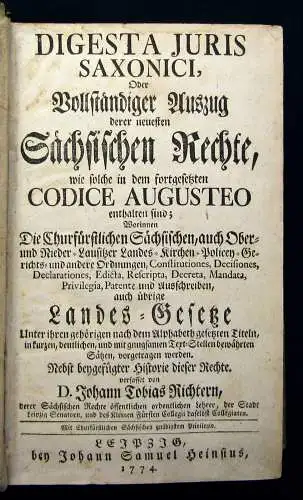 DIGESTA JURIS
SAXONICI,
Oder
Vollständiger Auszug
derer neuesten
Sächsischen Rechte,
wie solche in dem fortgesetzten
CODICE AUGUSTEO
enthalten sind;
Worinnen
Die Churfürstlichen Sächsischen, auch Ober-
und Nieder-Lausitzer Landes-Kirchen-Policey-Ge-
richts- und andere Ordnungen, Constitutiones, Decisiones,
Declarationes, Edicta, Rescripta, Decreta, Mandata,
Privilegia, Patente und Ausschreiben,
auch übrige
Landes-Gesetze
Unter ihren gehörigen nach dem Alphabeth gesetzten Titeln,
in kurzen, deutlichen, und mit gnugsamen Text-Stellen bewährten
Sätzen, vorgetragen werden.
Nebst beygefügter Historie dieser Rechte.
verfasset von
D. Johann Tobias Richtern,
derer Sächsischen Rechte öffentlichen ordentlichen Lehrer, der Stadt
Leipzig Senatorn, und des Kleinen Fürsten Collegii daselbst Collegiaten.
Mit Churfürstlichen Sächsischen gnädigsten Privilegio.
LEIPZIG,
bey Johann Samuel Heinsius,
1774